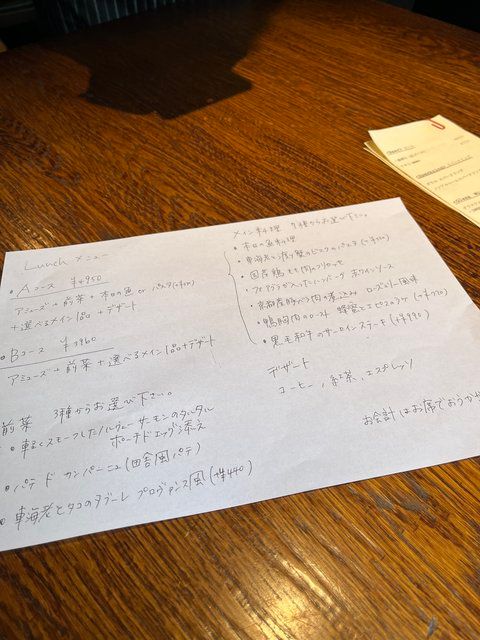 Lunch メニュー
・Aコース ¥4950
アミューズ + 前菜 + 本日の魚 or パスタ
+ 選べるメイン1品 + デザート
・Bコース ¥3960
アミューズ + 前菜 + 選べるメイン1品 + デザート
前菜 3種からお選び下さい。
・軽くスモークしたノルウェーサーモンのタルタル
ポーチドエッグ添え
・パテ ド カンパーニュ (田舎風パテ)
・車海老とタコのタブーレ プロヴァンス風 (+¥440)
メイン料理 7種からお選び下さい。
・本日の魚料理
・車海老と渡り蟹のビスクのパスタ
・国産鶏もも肉のフリカッセ
・フォアグラが入ったハンバーグ 赤ワインソース
・京都産豚バラ肉の煮込み
・鴨胸肉のロースト 蜂蜜とエピスのソース
・黒毛和牛のサーロインステーキ
デザート
コーヒー, 紅茶, エスプレッソ
お会計はお席でおうかが